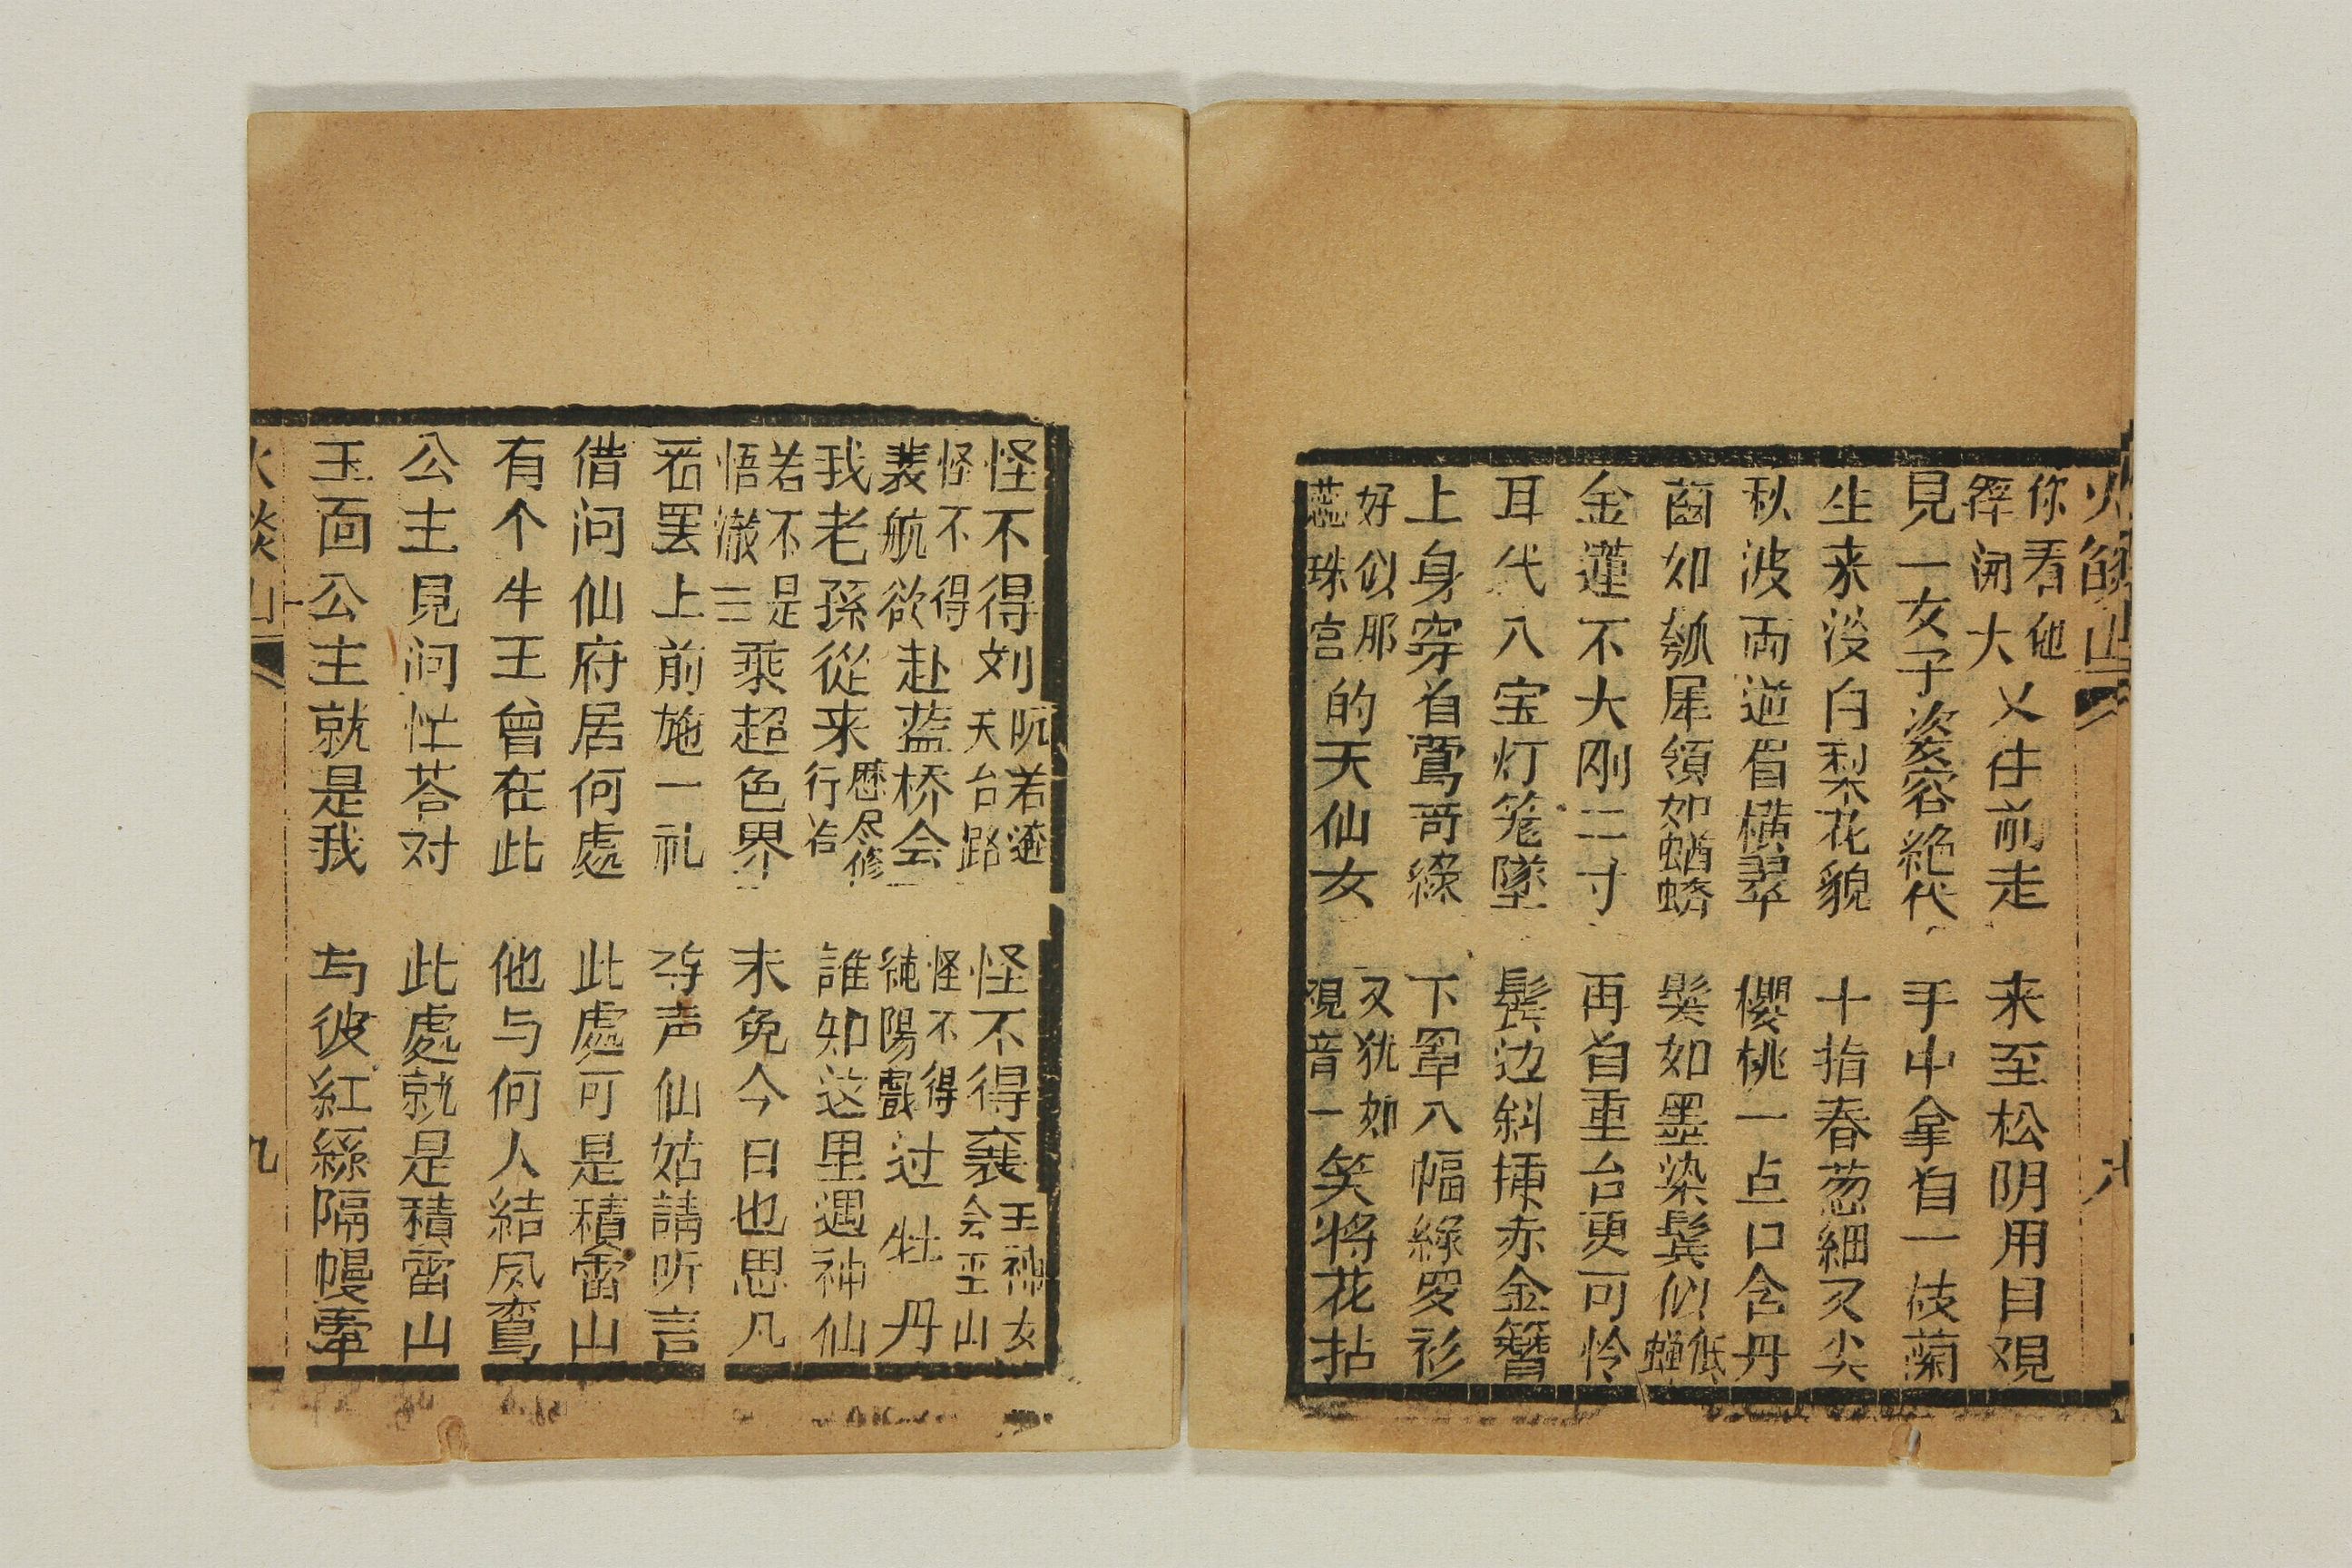 火焰山
八
你看他搾開大乂往前走 来至松阴用目覌
見一女子姿容絶代 手中拿自一枝蘭
生来没白梨花貌 十指春葱細又尖
秋波両道眉橫翠 櫻桃一点口含丹
齒如瓠犀領如蝤蛴 髮如墨染鬓似低蟬
金蓮不大刚二寸 再自重台更可怜
耳代八宝灯笼墜 鬓边斜挿赤金簪
上身穿自鶯哥綠 下罩八幅綠罗衫
好似那蕊珠宫的天仙女 又犹如覌音一笑将花拈
怪不得刘阮若遊天台路 怪不得襄王神女会巫山
怪不得裴航欲赴蓝桥会 怪不得純陽戲过牡丹
我老孫從来歷尽修行冶 誰知这里遇神仙
若不是悟澈三乘超色界 未免今日也思凡
看罢上前施一礼 尊声仙姑請听言
借问仙府居何處 此處可是積雷山
有个牛王曾在此 他与何人結凤鸾
公主見问忙荅对 此處就是積雷山
玉面公主就是我 与彼紅絲隔幔牽
火焰山
九